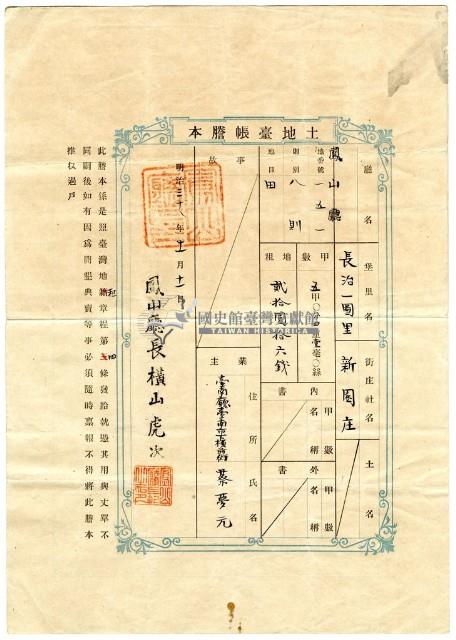 土地臺帳謄本
廳名
鳳山廳
堡里名
長治一圖里
街庄社名
新園庄
土名
地番號
一五一
則別
八則
地目
田
甲數
地租
貳拾圓拾六錢
內書
甲數
名稱
外書
甲數
名稱
事故
業主
住所
氏名
蔡夢元
明治三十八年十一月十一日
鳳山廳長橫山虎次
國史館臺灣文獻館
TAIWAN HISTORICA
此謄本係是照臺灣地租規則第四條發給就過其用與丈單不
同嗣後如有因爲開墾典賣等事必須隨時稟報不得將此謄本
推收過戶